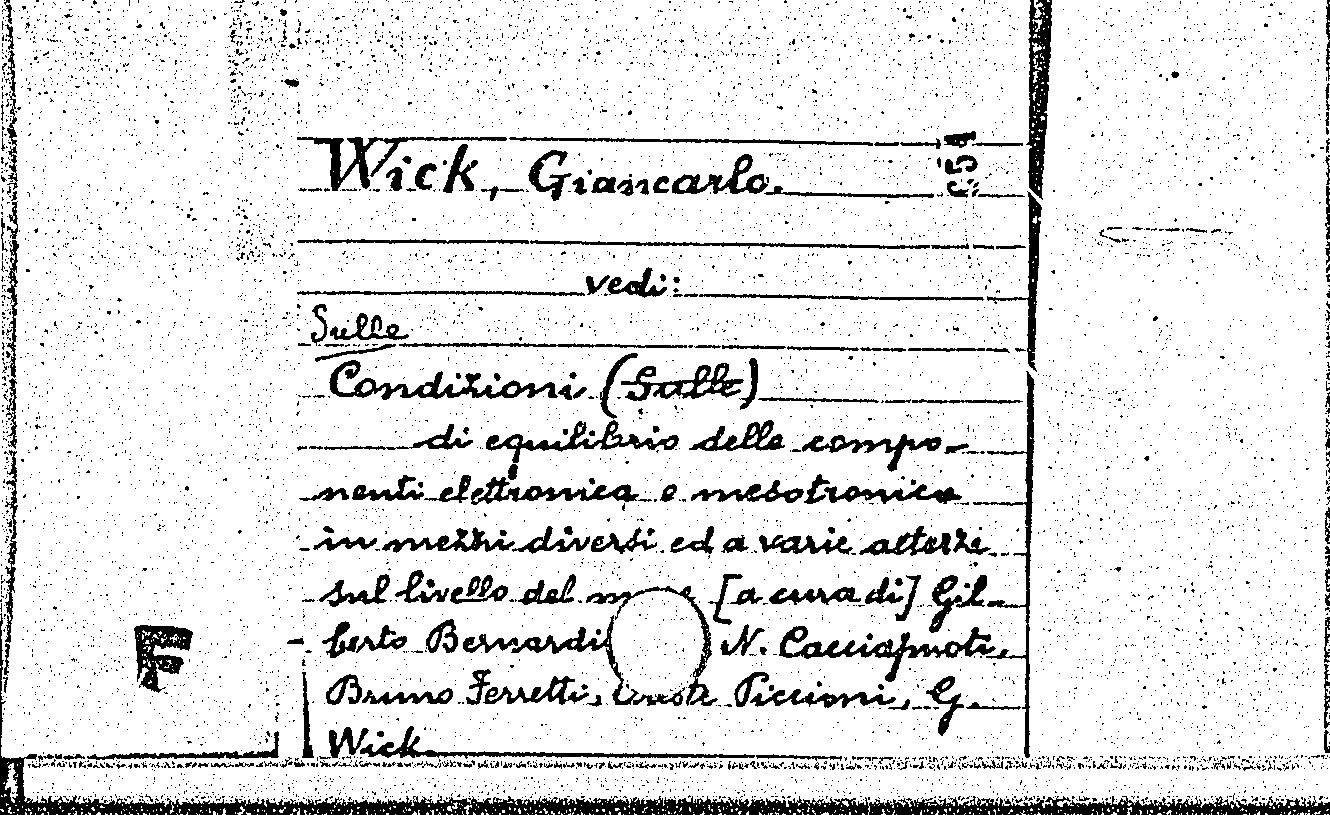 Wick, Giancarlo.
vedi:
Sulle
Condizioni (Sulle)
di equilibrio delle compo-
nenti elettronica e mesotronica
in mezzi diversi ed a varie altezze
sul livello del [a cura di] Gil-
berto Bernardi N. Cacciapuoti,
Bruno Ferretti, Oreste Piccioni, G.
Wick.
F